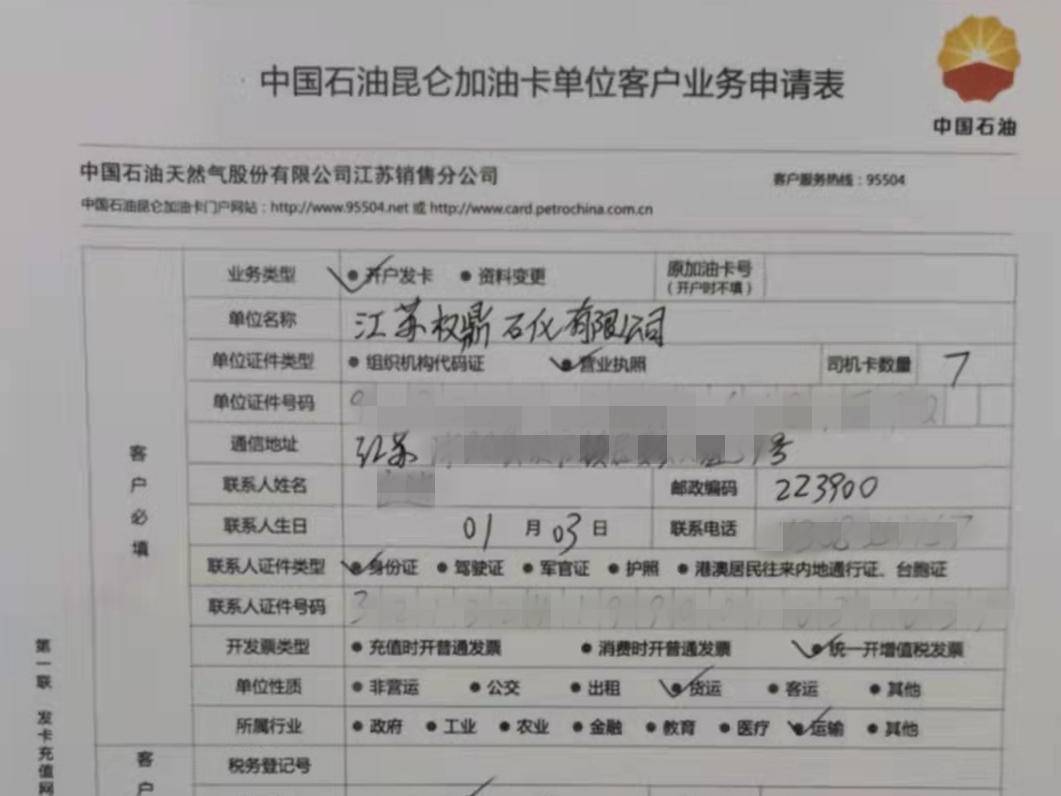 中国石油昆仑加油卡单位客户业务申请表
中国石油
中国石油天然气股份有限公司江苏销售分公司
客户服务热线：95504
中国石油昆仑加油卡门户网站：http://www.95504.net 或 http://www.card.petrochina.com.cn
业务类型 开户发卡 资料变更 原加油卡号
（开户时不填）
单位名称 江苏权鼎石化有限公司
单位证件类型 组织机构代码证 营业执照 司机卡数量 7
单位证件号码
通信地址 江苏 号
联系人姓名 邮政编码 223900
联系人生日 01 月 03 日 联系电话
联系人证件类型 身份证 驾驶证 军官证 护照 港澳居民往来内地通行证、台胞证
联系人证件号码
开发票类型 充值时开普通发票 消费时开普通发票 统一开增值税发票
单位性质 非营运 公交 出租 货运 客运 其他
所属行业 政府 工业 农业 金融 教育 医疗 运输 其他
税务登记号
客户必填
客户
第一联 发卡充值网